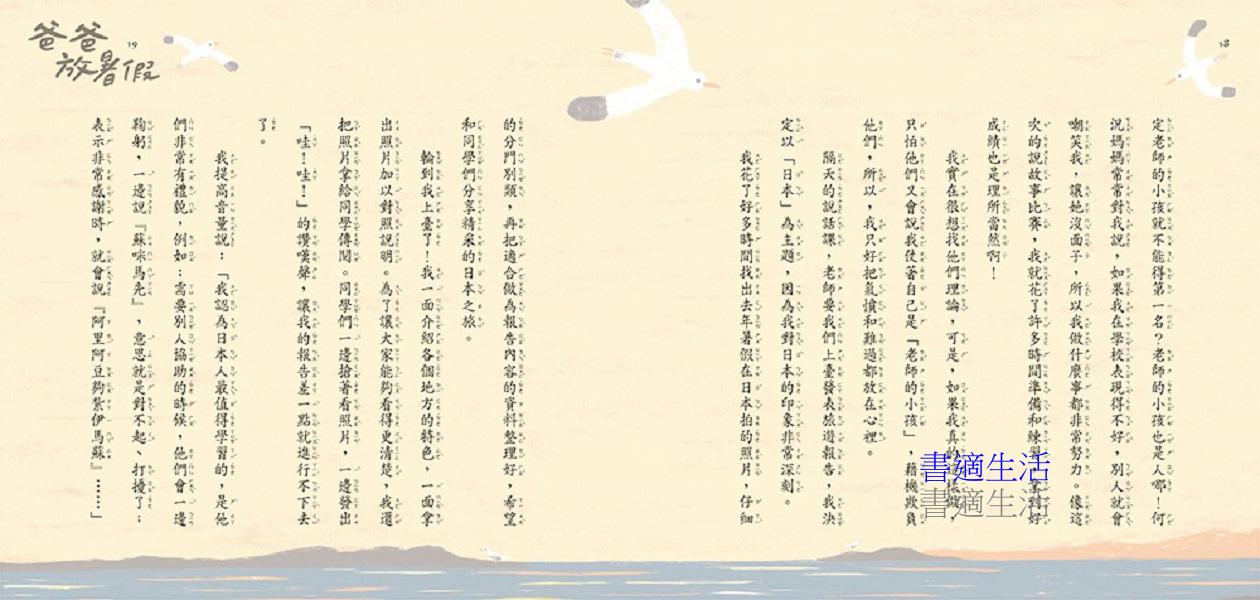 18
定老師的小孩就不能得第一名？老師的小孩也是人哪！何
況媽媽常常對我說，如果我在學校表現得不好，別人就會
嘲笑我，讓她沒面子，所以我做什麼事都非常努力。像這
次的說故事比賽，我就花了許多時間準備和練習，拿到好
成績也是理所當然啊！
我實在很想找他們理論，可是，如果我真的這樣做，
只怕他們又會說我仗著自己是「老師的小孩」，藉機欺負
他們，所以，我只好把氣憤和難過都放在心裡。
隔天的說話課，老師要我們上臺發表旅遊報告，我決
定以「日本」為主題，因為我對日本的印象非常深刻。
我花了好多時間找出去年暑假在日本拍的照片，仔細
的分門別類，再把適合做為報告內容的資料整理好，希望
和同學們分享精采的日本之旅。
輪到我上臺了！我一面介紹各個地方的特色，一面拿
出照片加以對照說明。為了讓大家能夠看得更清楚，我還
把照片拿給同學傳閱。同學們一邊搶著看照片，一邊發出
「哇！哇！」的讚嘆聲，讓我的報告差一點就進行不下去
了。
我提高音量說：「我認為日本人最值得學習的，是他
們非常有禮貌，例如：需要別人協助的時候，他們會一邊
鞠躬，一邊說『蘇咪馬先』，意思就是對不起、打擾了；
表示非常感謝時，就會說『阿里阿豆夠紮伊馬蘇』……」
19
爸爸
放暑假
書適生活
書適生活